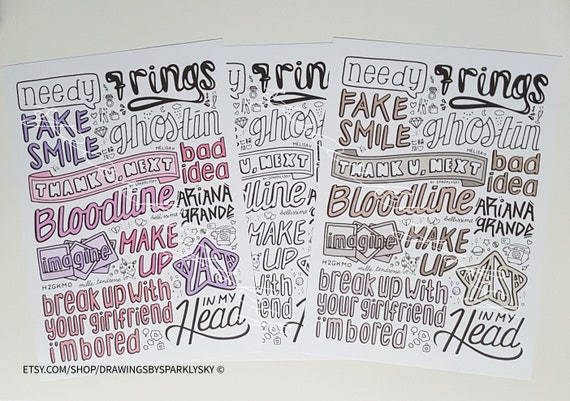 needy
7 rings
FAKE
SMILE
ghostin
THANK U, NEXT
bad
idea
Bloodline
bellissima
ARiANA
GRANDE
imagine
MAKE
UP
NASA
H2GKMO
mille tendresse
break up with
your girlfriend
i'm bored
IN MY
Head
7 rings
ghostin
U, NEXT
dline
bellissima
MAKE
UP
needy
7 rings
FAKE
SMILE
ghostin
THANK U, NEXT
bad
idea
Bloodline
bellissima
ARiANA
GRANDE
imagine
MAKE
UP
NASA
H2GKMO
mille tendresse
break up with
your girlfriend
i'm bored
IN MY
Head
ETSY.COM/SHOP/DRAWINGSBYSPARKLYSKY ©